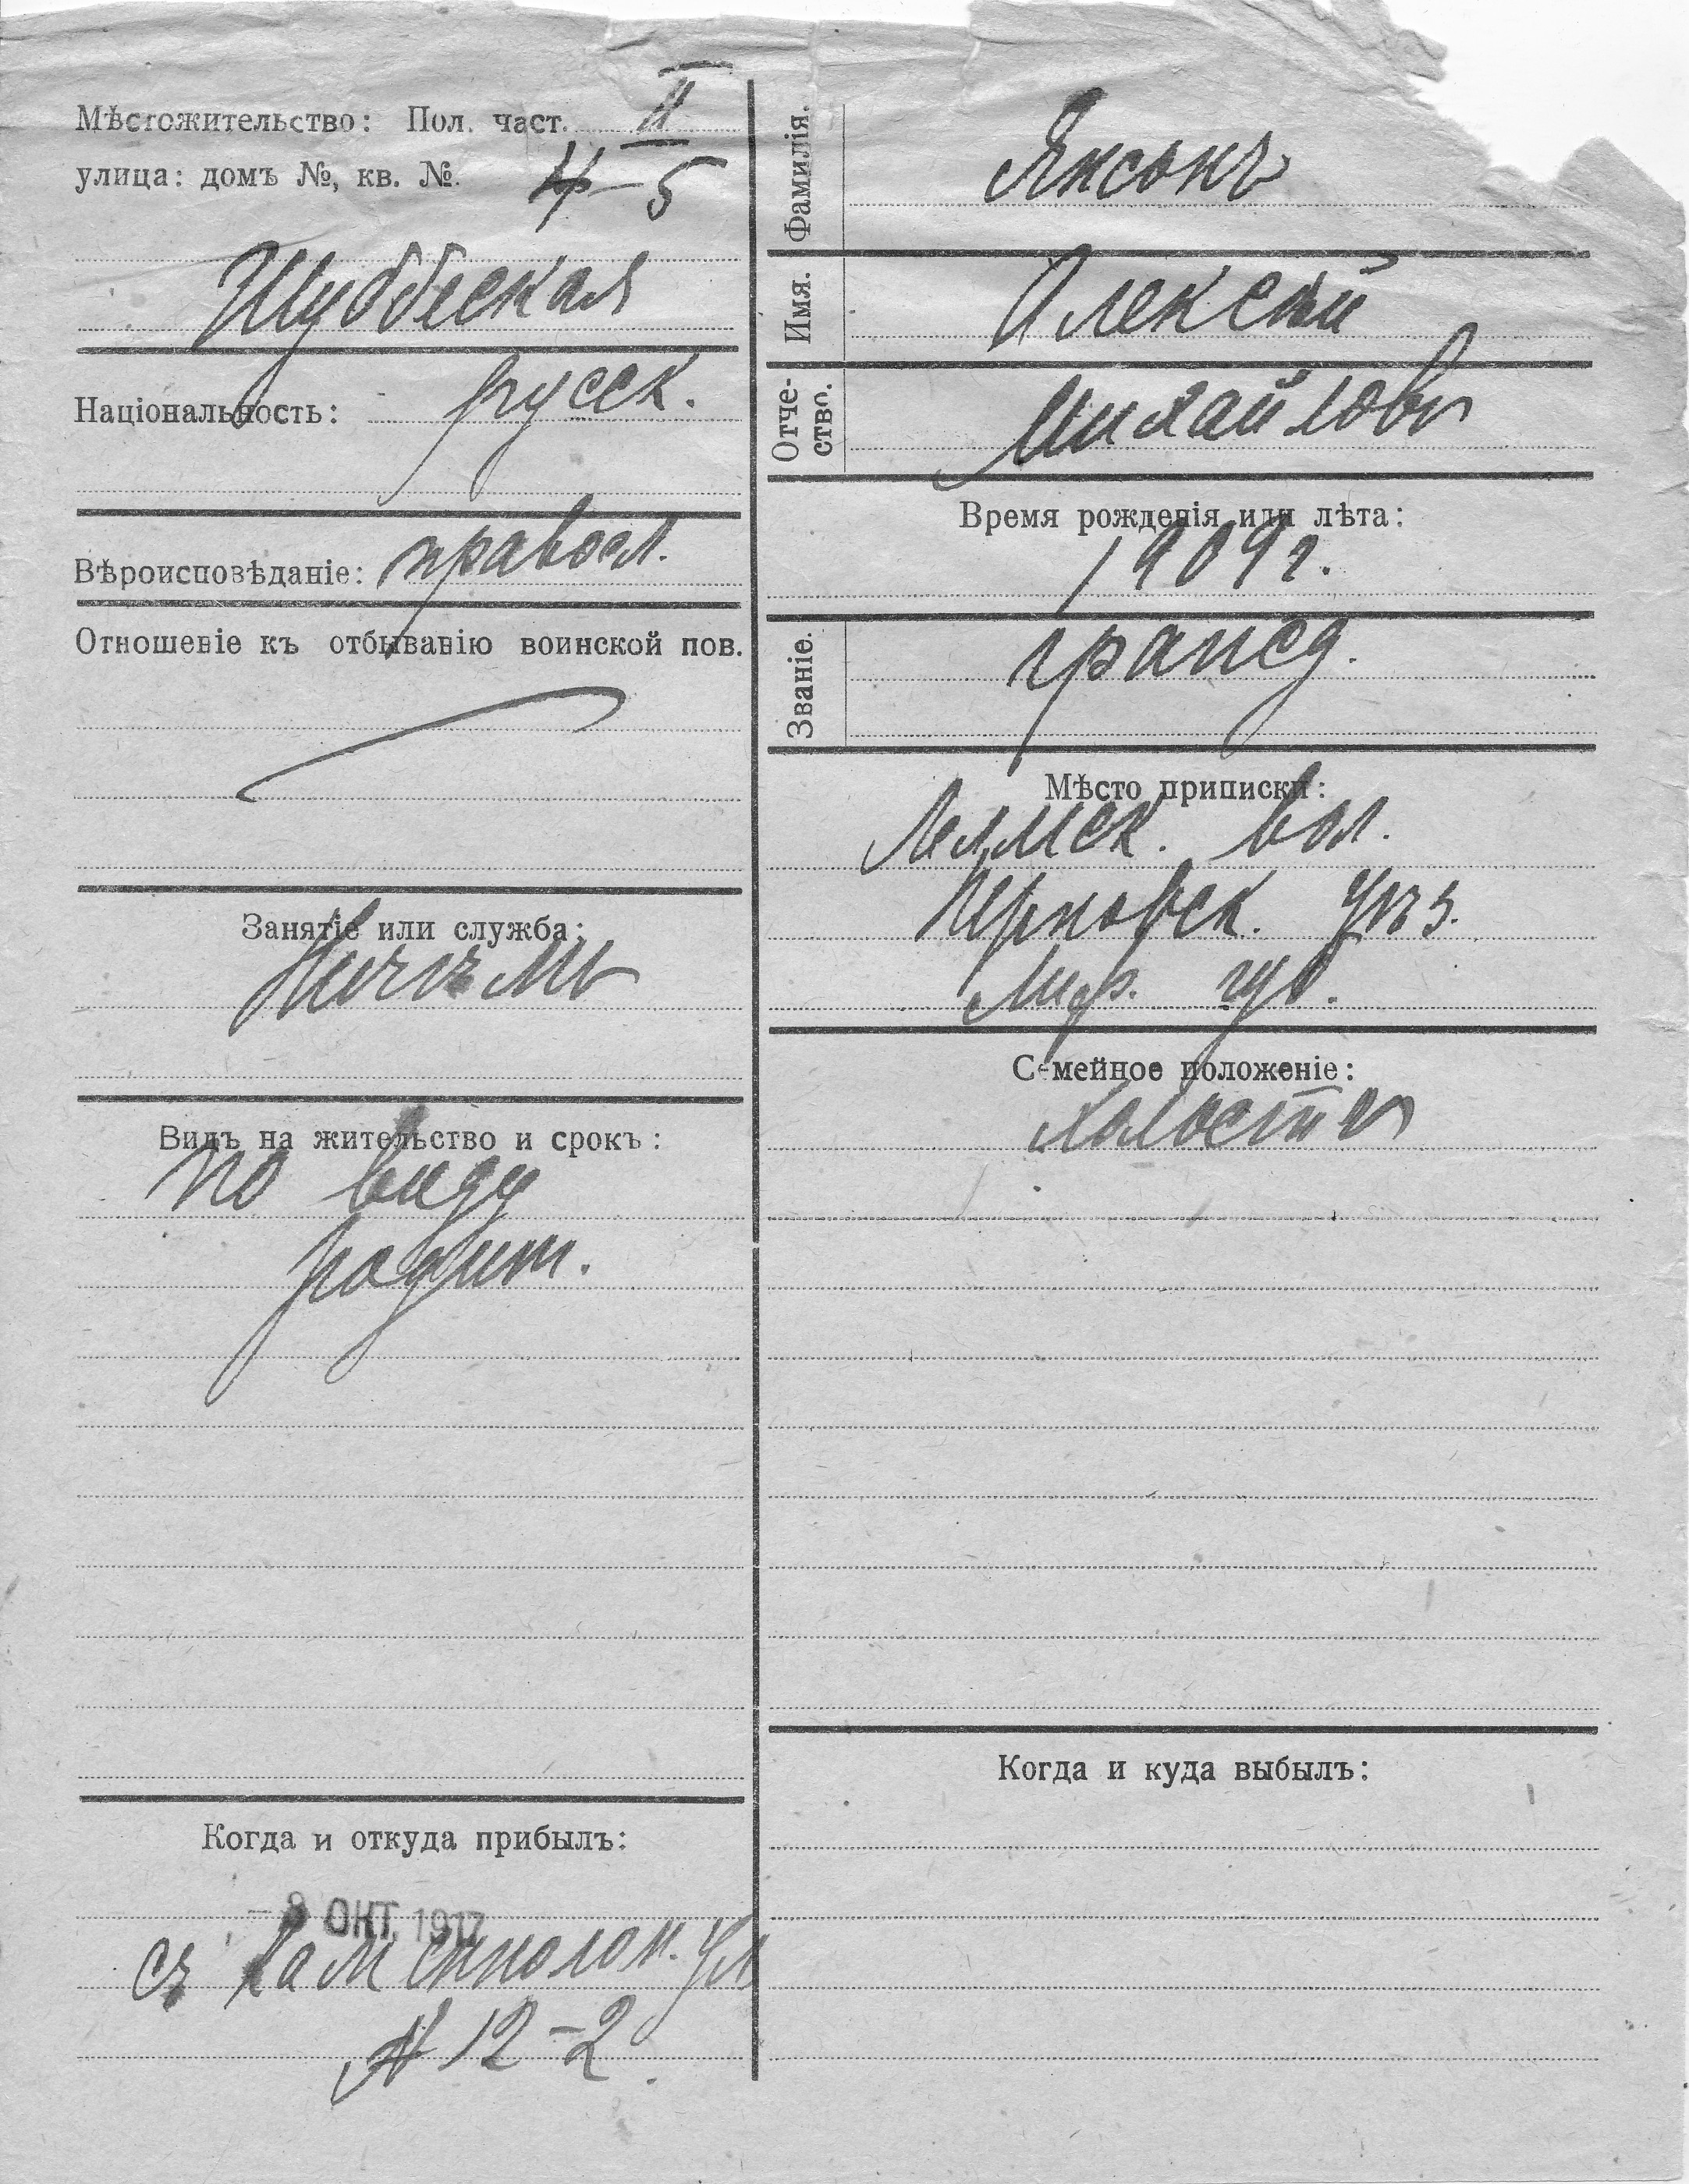 Мѣстожительство: Пол. част. II
улица: домъ №, кв. №. 4-5
Національность: русск.
Вѣроисповѣданіе: правосл.
Отношеніе къ отбыванію воинской пов.
Занятіе или служба:
Видъ на жительство и срокъ:
по виду
родит.
Когда и откуда прибылъ:
ОКТ. 1917
съ ул
№ 12-2
Фамилія. Яксонъ
Имя. Алексѣй
Отчество. Михайловъ
Время рожденія или лѣта:
1909 г.
Званіе.
Мѣсто приписки:
вол.
Перновск. уѣз.
Лиф. губ.
Семейное положеніе:
Холостъ
Когда и куда выбылъ: